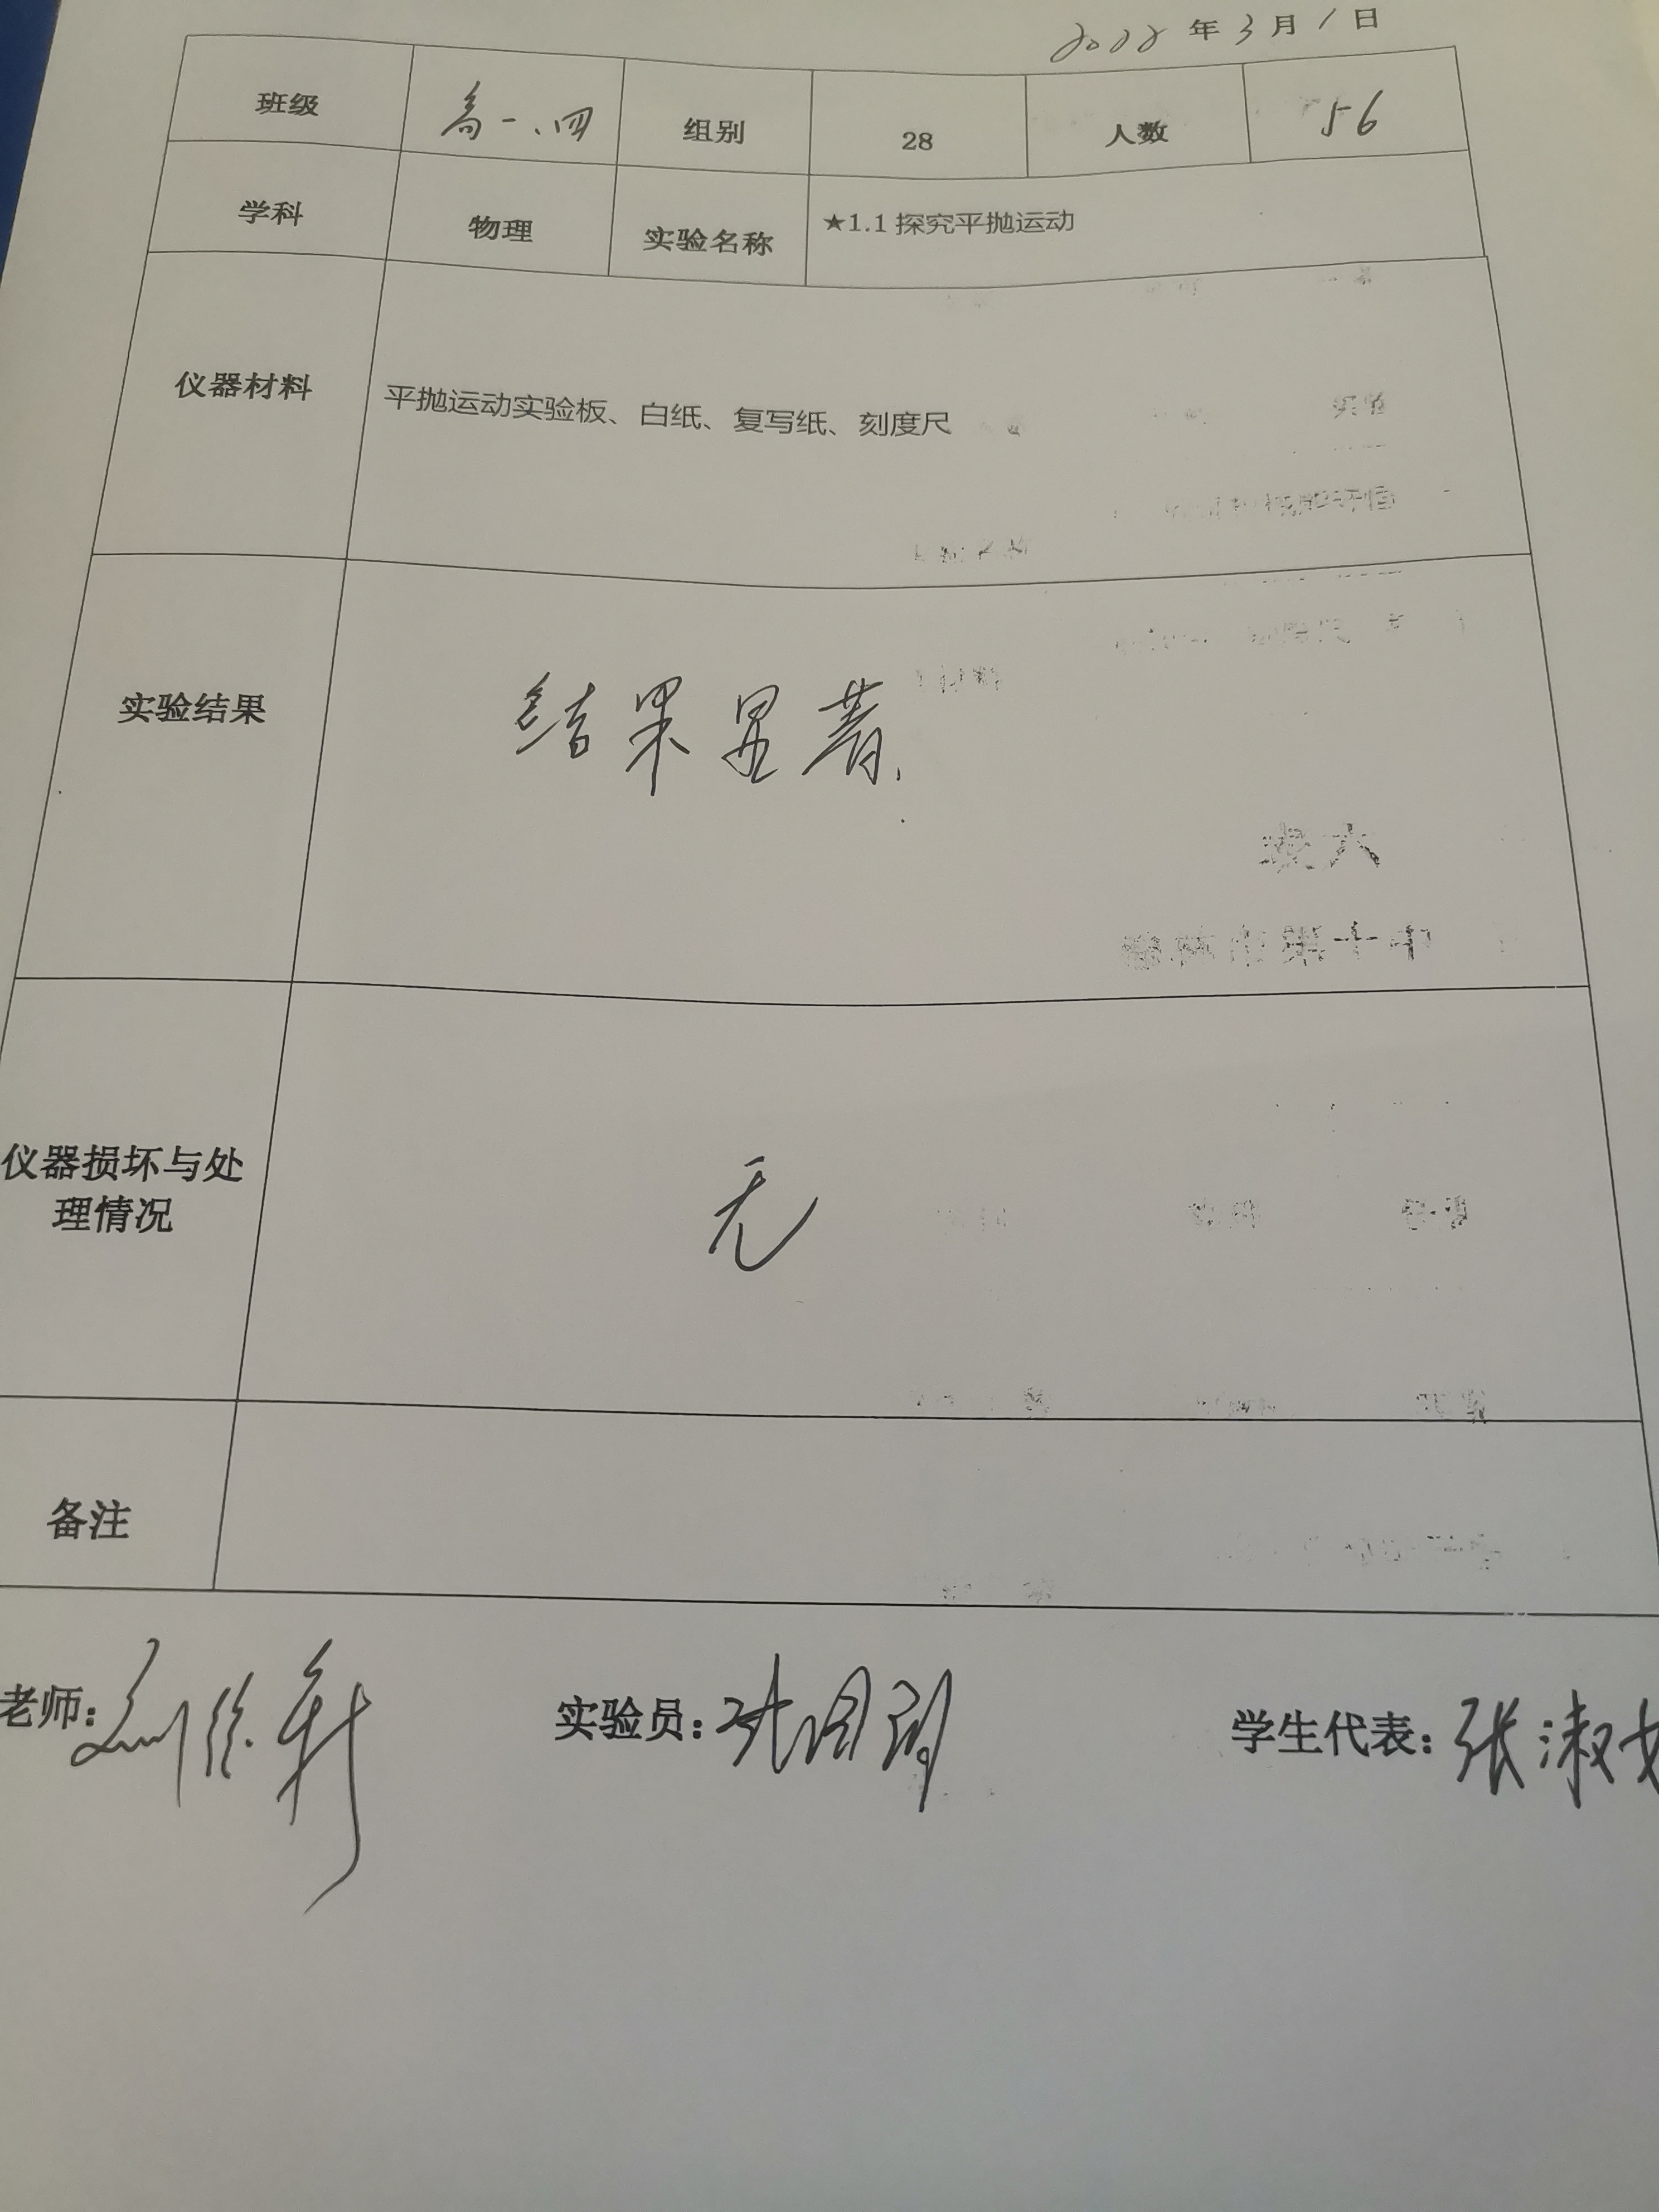 2022年3月1日
班级 高一.四 组别 28 人数 56
学科 物理 实验名称 ★1.1 探究平抛运动
仪器材料 平抛运动实验板、白纸、复写纸、刻度尺
实验结果 结果显著.
仪器损坏与处
理情况 无
备注
老师: 实验员: 学生代表: 张淑